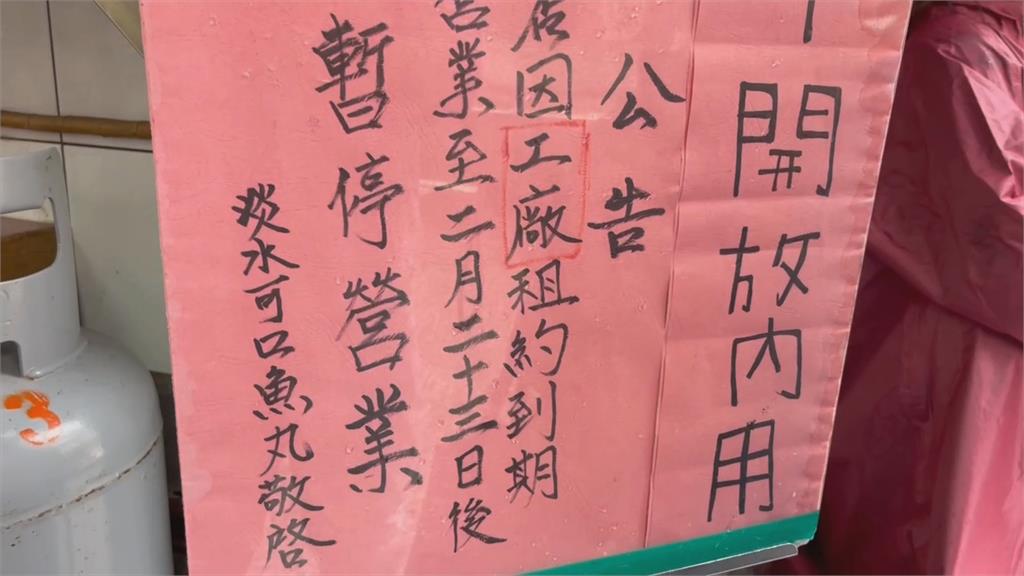 開放內用
公告
店因工廠租約到期
營業至二月二十三日後
暫停營業
淡水可口魚丸敬啓
3